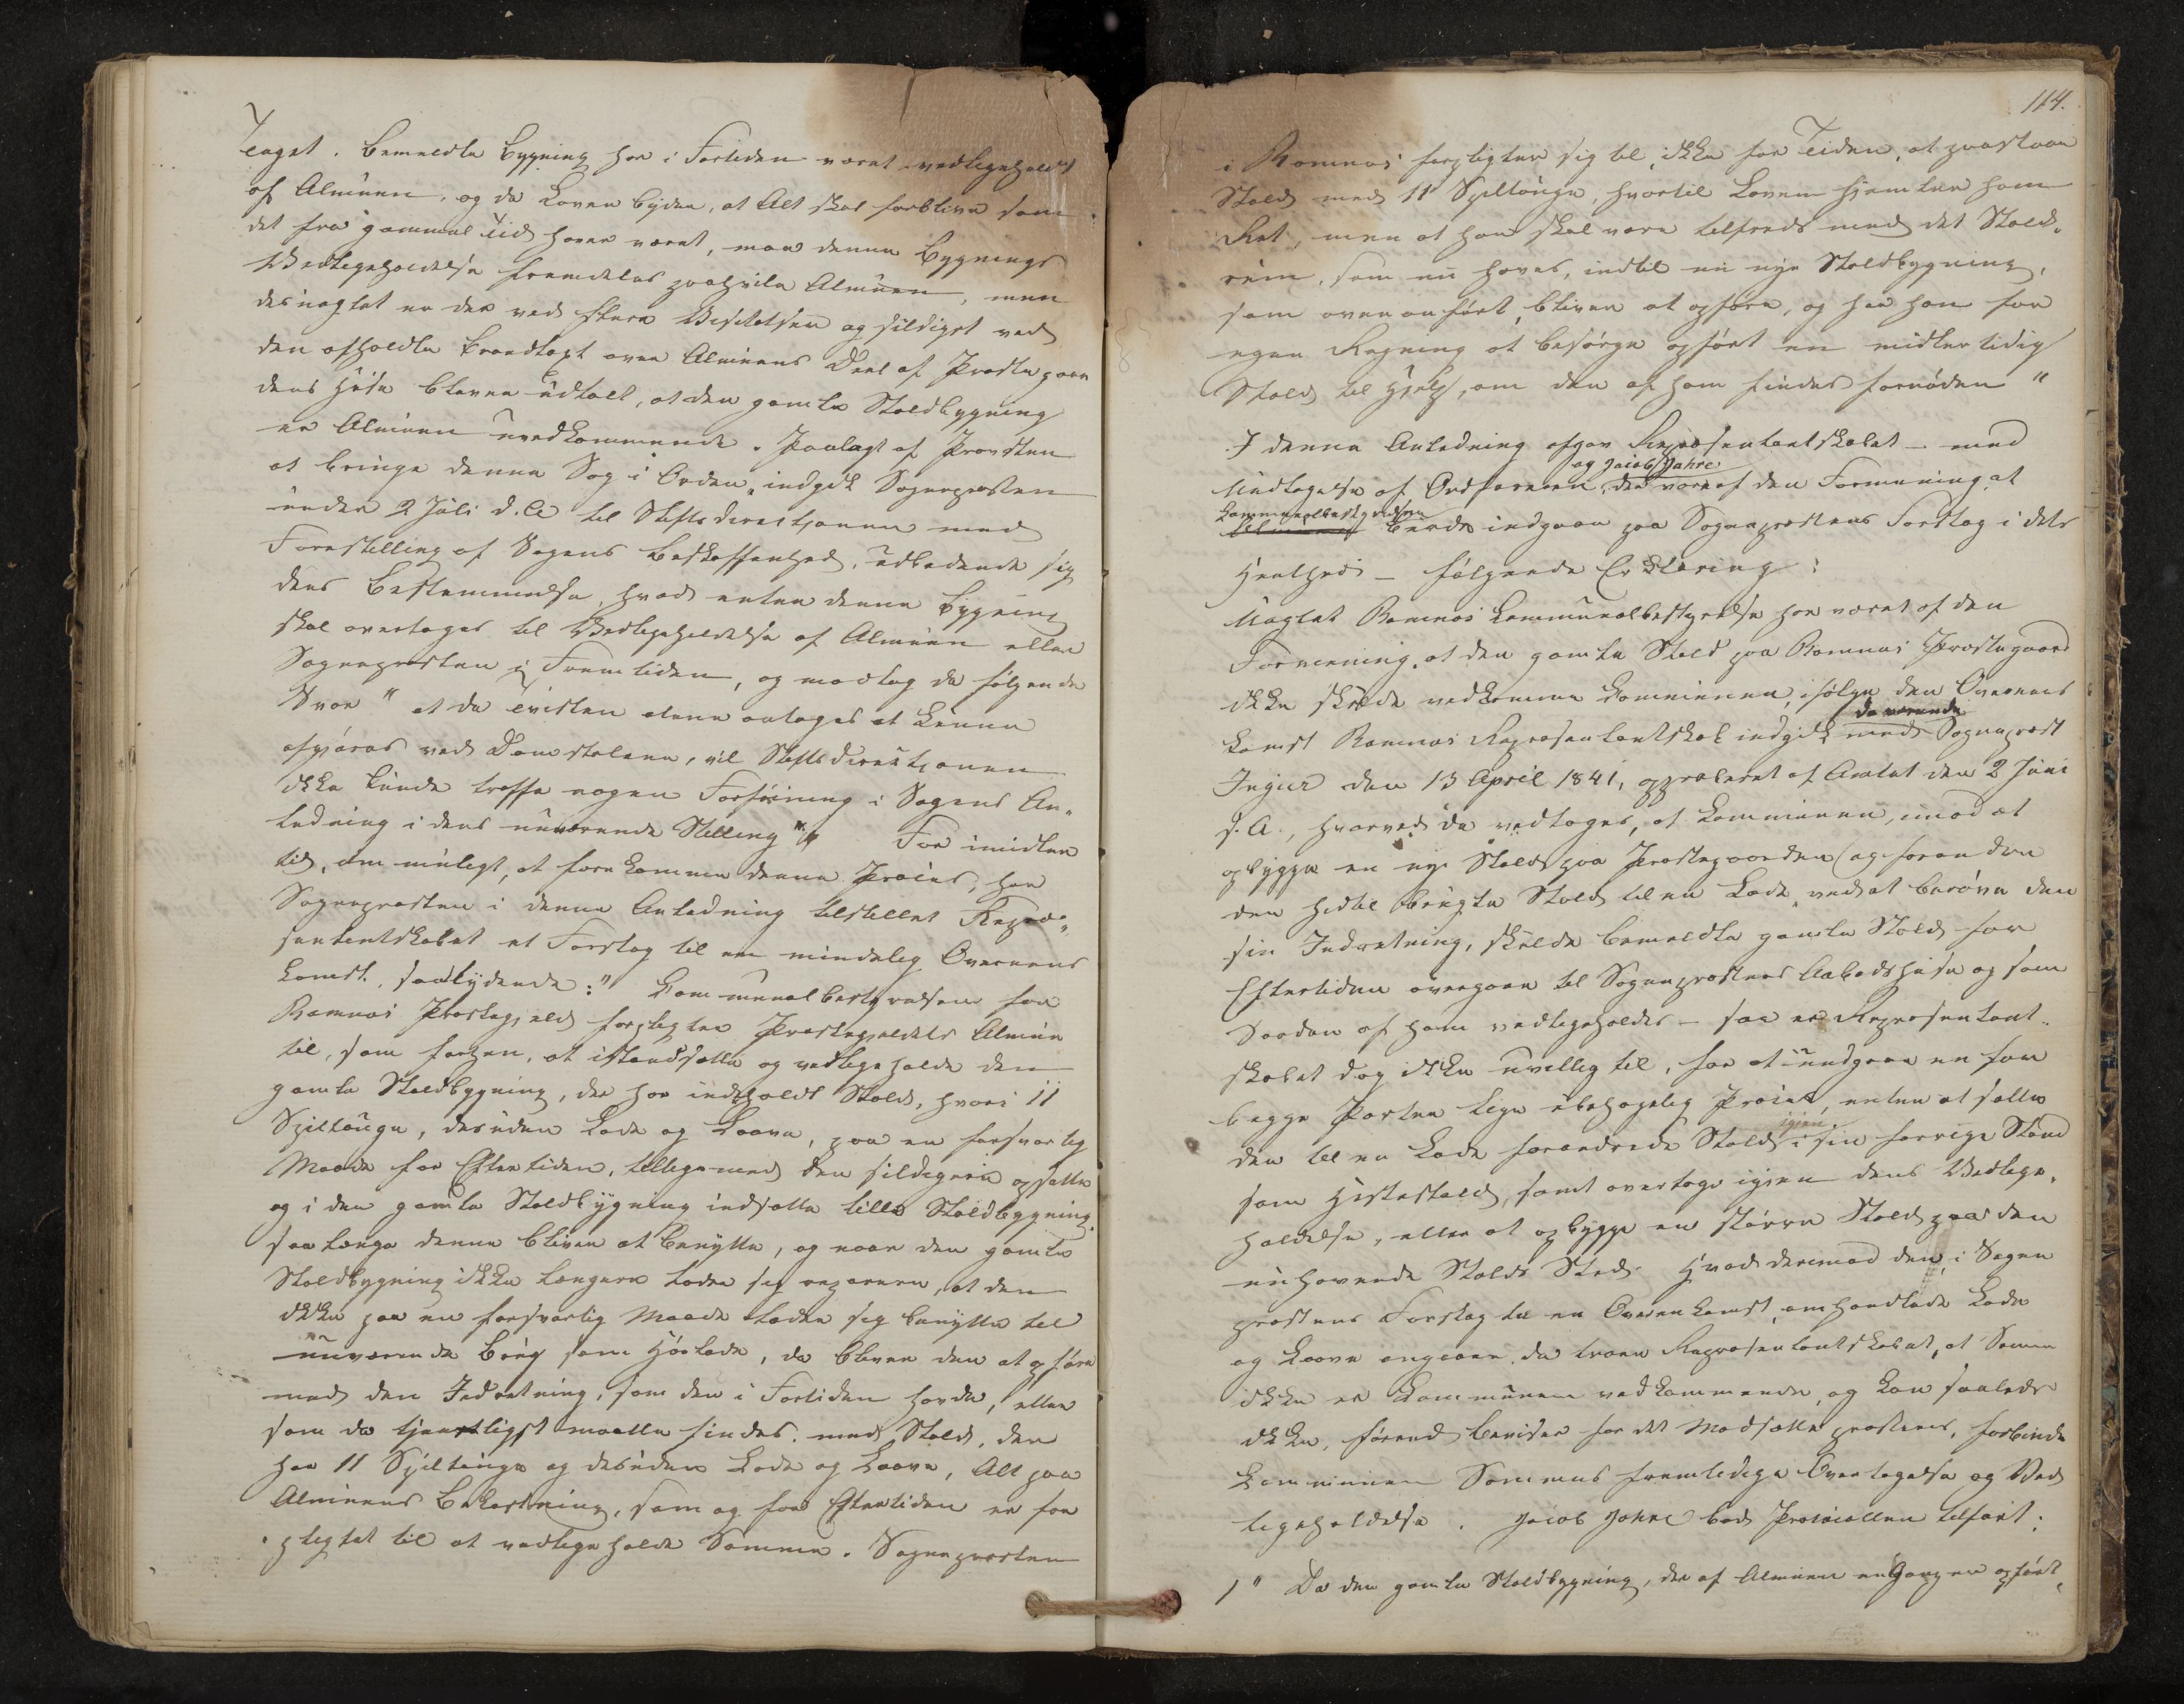 taget. Bemeldte Bygning har i Fortiden været vedligeholdt
af Almuen, og da Loven byder, at Alt skal forblive som
det fra gammel Tid haver været, maa denne Bygnings
Vedligeholdelse fremdeles paahvile Almuen, men
desuagtet er der ved flere Visitatser og sildigst ved
den afholdte Brandtaxt over Almuens Deel af Præstegaar
dens Huse bleven udtalt, at den gamle Staldbygning
er Almuen uvedkommende. Paalagt af Provsten
at bringe denne Sag i Orden, indgik Sognepræsten
under 2 Juli d. A. til Stiftsdirectionen med
Forestilling af Sagens Beskaffenhed, udbedende sig
dens Bestemmelse, hvad enten denne Bygning
skal overtages til Vedligeholdelse af Almuen eller
Sognepræsten i Fremtiden, og modtog da følgende
Svar "at da Tvisten alene antages at kunne
afgjøres ved Domstolene, vil Stiftsdirectionen
ikke kunde træffe nogen Forføining i Sagens An„
ledning i dens nuværende Stilling". For imidler
tid, om muligt, at forekomme denne Proces, har
Sognepræsten i denne Anledning tilstillet Repræ„
sentantskabet et Forslag til en mindelig Overeens
komst, saalydende: "Communalbestyrelsen for
Ramnæs Præstegjeld forpligter Præstegjeldets Almue
til, som forhen, at istandsætte og vedligeholde den
gamle Staldbygning, der har indeholdt Stald, hvori 11
Spiltouge, desuden Lade og Laave, paa en forsvarlig
Maade for Eftertiden, tilligemed den sildigere opsatte
og i den gamle Staldbygning indsatte lille Staldbygning
saa længe denne bliver at benytte, og naar den gamle
Staldbygning ikke længere lader sig reparere, at den
ikke paa en forsvarlig Maade lader sig benytte til
nuværende Brug som Høelade, da bliver den at opføre
med den Indretning, som den i Fortiden havde, eller
som da tjenligst maatte findes, med Stald, der
har 11 Spiltouge og desuden Lade og Laave, Alt paa
Almuens Bekostning, som og for Eftertiden er for
pligtet til at vedligeholde Samme. Sognepræsten
114.
i Ramnæs forpligter sig til ikke for Tiden, at paastaae
Stald med 11 Spiltouge, hvortil Loven hjemler ham
Ret, men at han skal være tilfreds med det Stald„
rum, som nu haves, indtil en nye Staldbygning,
som ovenanført, bliver at opføre, og har han for
egen Regning at besørge opført en midlertidig
Stald til Hjelp, om den af ham findes fornøden"
I denne Anledning afgav Repræsentantskabet – med
og Jacob Jahre
Undtagelse af Ordføreren, der vare af den Formening at
Kommunalbestyrelsen
Almuen burde indgaae paa Sognepræstens Forslag i dets
Heelhed – følgende Erklæring:
Uagtet Ramnæs Kommunalbestyrelse har været af den
Formening, at den gamle Stald paa Ramnæs Præstegaard
ikke skulde vedkomme Kommunen, ifølge den Overeens
da værende
komst Ramnæs Repræsentantskab indgik med Sognepræst
Ingier den 13 April 1841, approberet af Amtet den 2 Juni
s. A., hvorved da vedtoges, at Kommunen, imod at
opbygge en nye Stald paa Præstegaarden (og forandre
den hidtil brugte Stald til en Lade, ved at berøve den
sin Indretning, skulde bemeldte gamle Stald for
Eftertiden overgaae til Sognepræstens Aabodshuse og som
Saadan af ham vedligeholdes – saa er Repræsentant„
skabet dog ikke uvillig til, for at undgaae en for
begge Parter lige ubehagelig Proces, enten at sætte
igien
den til en Lade forandrede Stald i sin forrige Stand
som Hestestald, samt overtage igien dens Vedlige„
holdelse, eller at opbygge en større Stald paa den
nuhavende Stalds Sted. Hvad derimod den, i Sogne
præstens Forslag til en Overenkomst, omhandlede Lade
og Laave angaaer, da troer Repræsentantskabet, at Samme
ikke er Kommunen vedkommende, og kan saaledes
ikke, førend Beviser for det Modsatte præsteres, forbinde
Kommunen Sammes fremtidige Overtagelse og Ved
ligeholdelse. Jacob Jahre bad Protocollen tilført:
1" Da den gamle Staldbygning, der af Almuen engang er opført,